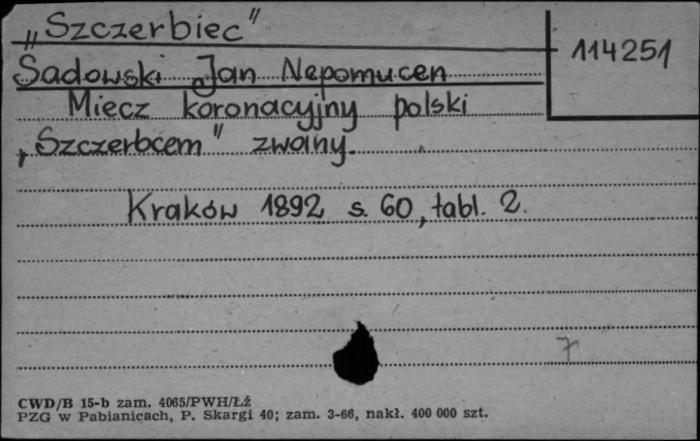 „Szczerbiec"
114251
Sadowski Jan Nepomucen
Miecz koronacyjny polski
„Szczerbcem" zwany.
Kraków 1892 s. 60, tabl. 2.
7
CWD/B 15-b zam. 4065/PWH/Łż
PZG w Pabianicach, P. Skargi 40; zam. 3-66, nakł. 400 000 szt.